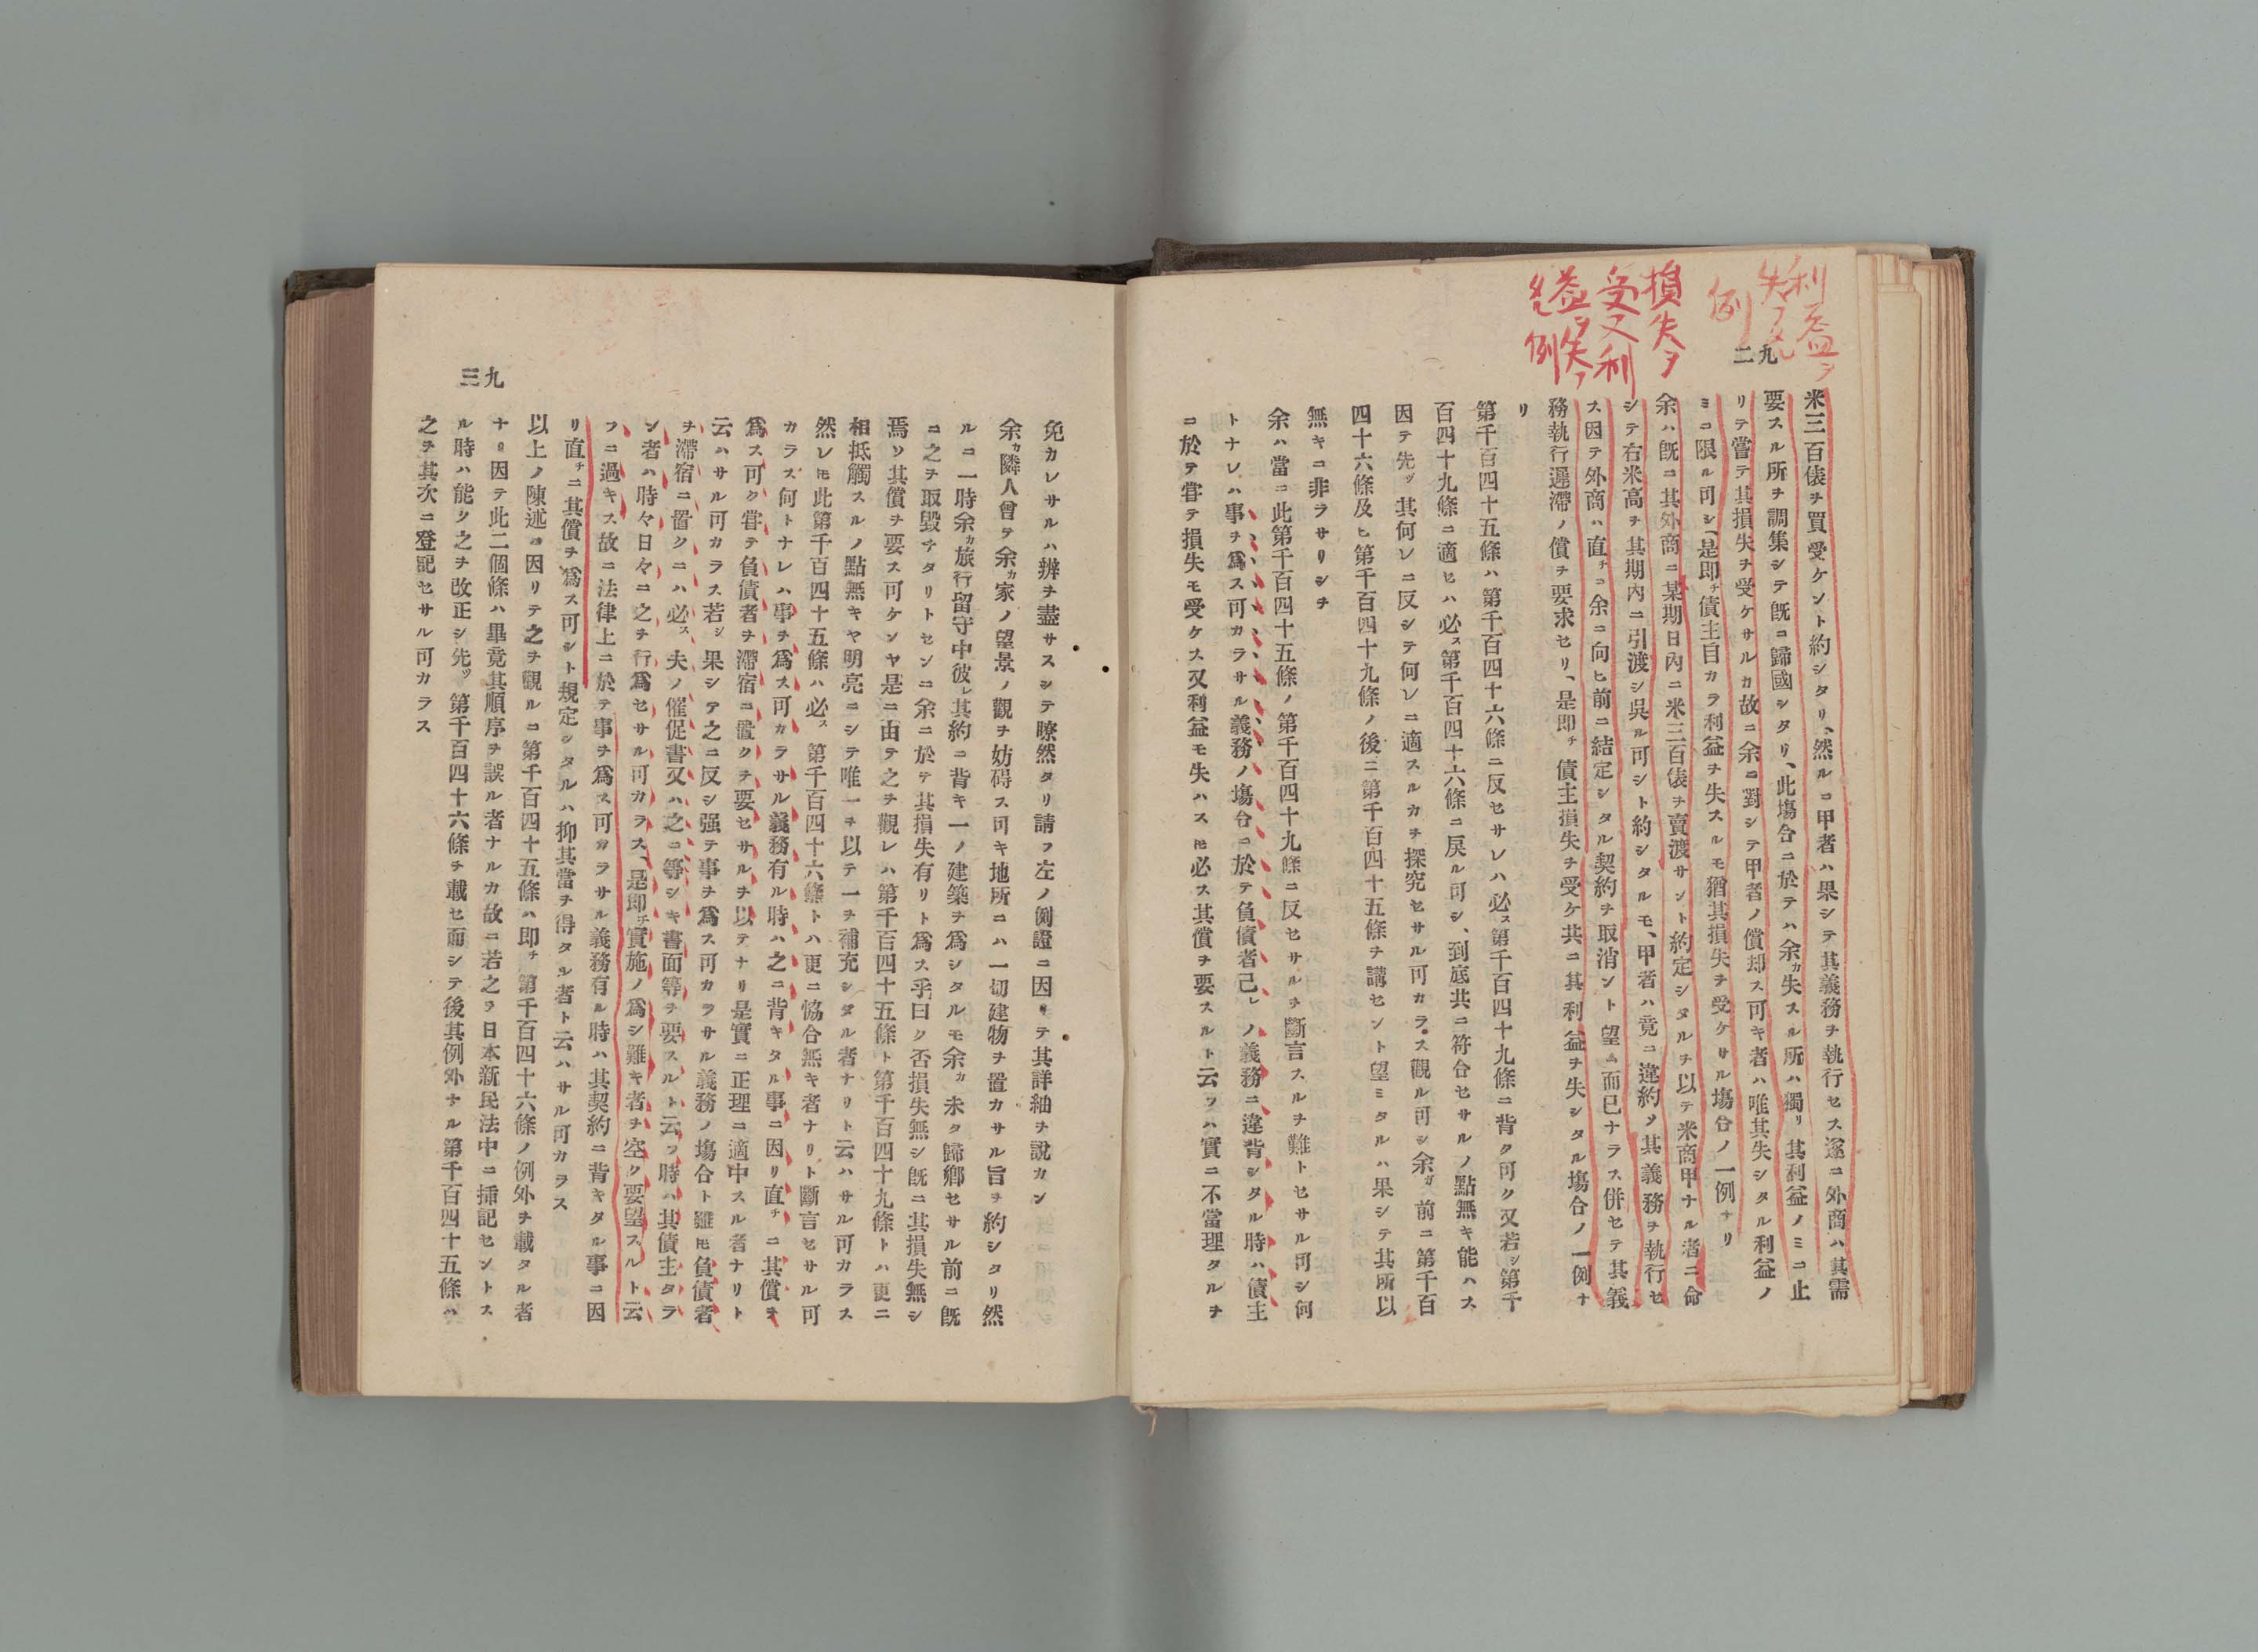 利益ヲ
失フタル
例
損失ヲ
受ス利
益ヲ失フ
タル例
九二
米三百俵ヲ買受ケント約シタリ、然ルニ甲者ハ果シテ其義務ヲ執行セス遂ニ外商ハ其需
要スル所ヲ調集シテ既ニ歸國シタリ、此塲合ニ於テハ余カ失スル所ハ獨リ其利益ノミニ止
リテ嘗テ其損失ヲ受ケサルカ故ニ余ニ對シテ甲者ノ償却ス可キ者ハ唯其失シタル利益ノ
ミニ限ル可シ、是即チ債主自カラ利益ヲ失スルモ猶其損失ヲ受ケサル塲合ノ一例ナリ
余ハ既ニ其外商ニ某期日內ニ米三百俵ヲ賣渡サント約定シタルヲ以テ米商甲ナル者ニ命
シテ右米高ヲ其期內ニ引渡シ吳ル可シト約シタルモ、甲者ハ竟ニ違約シ其義務ヲ執行セ
ス因テ外商ハ直チニ余ニ向ヒ前ニ結定シタル契約ヲ取消ント望ム而已ナラス併セテ其義
務執行遲滯ノ償ヲ要求セリ、是即チ債主損失ヲ受ケ共ニ其利益ヲ失シタル塲合ノ一例ナ
リ
第千百四十五條ハ第千百四十六條ニ反セサレハ必ス第千百四十九條ニ背ク可ク又若シ第千
百四十九條ニ適ヒハ必ス第千百四十六條ニ戾ル可シ、到底共ニ符合セサルノ點無キ能ハス
因テ先ツ其何レニ反シテ何レニ適スルカヲ探究セサル可カラス觀ル可シ余カ前ニ第千百
四十六條及ヒ第千百四十九條ノ後ニ第千百四十五條ヲ講セント望ミタルハ果シテ其所以
無キニ非ラサリシヲ
余ハ當ニ此第千百四十五條ノ第千百四十九條ニ反セサルヲ斷言スルヲ難トセサル可シ何
トナレハ事ヲ爲ス可カラサル義務ノ塲合ニ於テ負債者己レノ義務ニ違背シタル時ハ債主
ニ於テ甞テ損失モ受ケス又利益モ失ハス𪜈必ス其償ヲ要スルト云フハ實ニ不當理タルヲ
九三
免カレサルハ辨ヲ盡サスシテ瞭然タリ請フ左ノ例證ニ因リテ其詳紬ヲ說カン
余カ隣人曾テ余カ家ノ望景ノ觀ヲ妨碍ス可キ地所ニハ一切建物ヲ置カサル旨ヲ約シタリ然
ルニ一時余カ旅行留守中彼レ其約ニ背キ一ノ建築ヲ爲シタルモ余カ未タ歸鄉セサル前ニ既
ニ之ヲ取毀チタリトセンニ余ニ於テ其損失有リト爲ス乎曰ク否損失無シ既ニ其損失無シ
焉ソ其償ヲ要ス可ケンヤ是ニ由テ之ヲ觀レハ第千百四十五條ト第千百四十九條トハ更ニ
相抵觸スルノ點無キヤ明亮ニシテ唯一ヲ以テ一ヲ補充シタル者ナリト云ハサル可カラス
然レ𪜈此第千百四十五條ハ必ス第千百四十六條トハ更ニ恊合無キ者ナリト斷言セサル可
カラス何トナレハ事ヲ爲ス可カラサル義務有ル時ハ之ニ背キタル事ニ因リ直チニ其償ヲ
爲ス可ク甞テ負債者ヲ滯宿ニ置クヲ要セサルヲ以テナリ是實ニ正理ニ適中スル者ナリト
云ハサル可カラス若シ果シテ之ニ反シ强テ事ヲ爲ス可カラサル義務ノ塲合ト雖𪜈負債者
ヲ滯宿ニ置クニハ必ス夫ノ催促書又ハ之ニ等シキ書面等ヲ要スルト云フ時ハ其債主タラ
ン者ハ時々日々ニ之ヲ行爲セサル可カラス、是即チ實施ノ爲シ難キ者ヲ空ク要望スルト云
フニ過キス故ニ法律上ニ於テ事ヲ爲ス可カラサル義務有ル時ハ其契約ニ背キタル事ニ因
リ直チニ其償ヲ爲ス可シト規定シタルハ抑其當ヲ得タル者ト云ハサル可カラス
以上ノ陳述ニ因リテ之ヲ觀ルニ第千百四十五條ハ即チ第千百四十六條ノ例外ヲ載タル者
ナリ因テ此二個條ハ畢竟其順序ヲ誤ル者ナルカ故ニ若之ヲ日本新民法中ニ揷記セントス
ル時ハ能ク之ヲ改正シ先ツ第千百四十六條ヲ載セ而シテ後其例外ナル第千百四十五條ハ
之ヲ其次ニ登記セサル可カラス